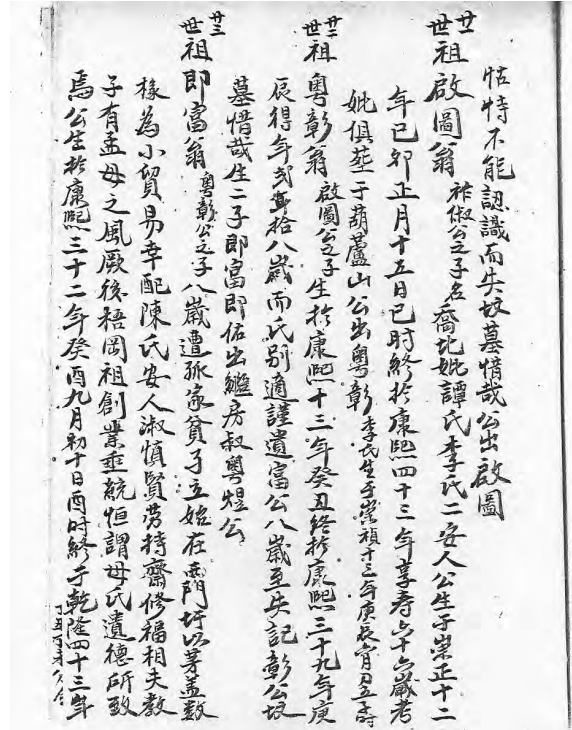 怙恃不能認識而失坟墓惜哉公出啟圖
廿一世祖啟圖翁 祚俶公之子名喬圮妣譚氏李氏二安人公生于崇正十二
年己卯正月十五日巳时終於康熙四十三年享寿六十六嵗考
妣俱塟于葫蘆山公出粤彰 李氏生于崇禎十三年庚辰
廿二世祖粤彰翁 啟圖公之子生於康熙十三年癸丑终於康熙三十九年庚
辰得年弍拾八嵗而氏别適謹遺富公八嵗至失記彰公坟
墓惜哉生二子即富即佑出繼房叔粤煜公
廿三世祖即富翁 粤彰公之子八嵗遭孤家貧孑立始在西門圩以茅盖数
椽為小貿易幸配陳氏安人淑慎賢劳持齋修福相夫教
子有孟母之風厥後梧岡祖創業垂統恒謂母氏遺德所致
焉公生於康熙三十二年癸酉九月初十日酉时終于乾隆四十三年